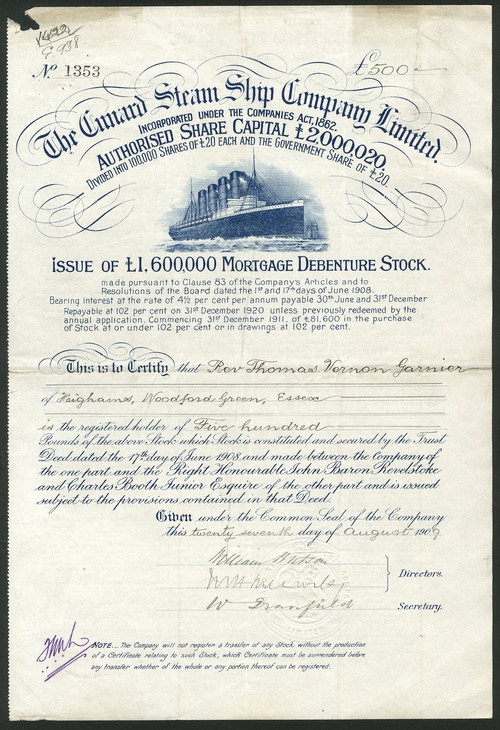 £938
No 1353
£500
The Cunard Steam Ship Company Limited.
INCORPORATED UNDER THE COMPANIES ACT, 1862.
AUTHORISED SHARE CAPITAL £2,000,020.
DIVIDED INTO 100,000 SHARES OF £20 EACH AND THE GOVERNMENT SHARE OF £20.
ISSUE OF £1,600,000 MORTGAGE DEBENTURE STOCK.
made pursuant to Clause 83 of the Company's Articles and to
Resolutions of the Board dated the 1st and 17th days of June 1908.
Bearing interest at the rate of 4½ per cent per annum payable 30th June and 31st December
Repayable at 102 per cent on 31st December 1920 unless previously redeemed by the
annual application. Commencing 31st December 1911, of £81,600 in the purchase
of Stock at or under 102 per cent or in drawings at 102 per cent.
This is to Certify that Rev Thomas Vernon Garnier
of Heighams, Woodford Green, Essex
is the registered holder of Five hundred
Pounds of the above Stock which Stock is constituted and secured by the Trust
Deed dated the 17th day of June 1908, and made between the Company of
the one part and the Right Honourable John Baron Revelstoke
and Charles Booth Junior Esquire of the other part and is issued
subject to the provisions contained in that Deed.
Given under the Common Seal of the Company
this twenty seventh day of August 1909
William Watson
Directors.
Secretary.
NOTE... The Company will not register a transfer of any Stock without the production
of a Certificate relating to such Stock, which Certificate must be surrendered before
any transfer whether of the whole or any portion thereof can be registered.